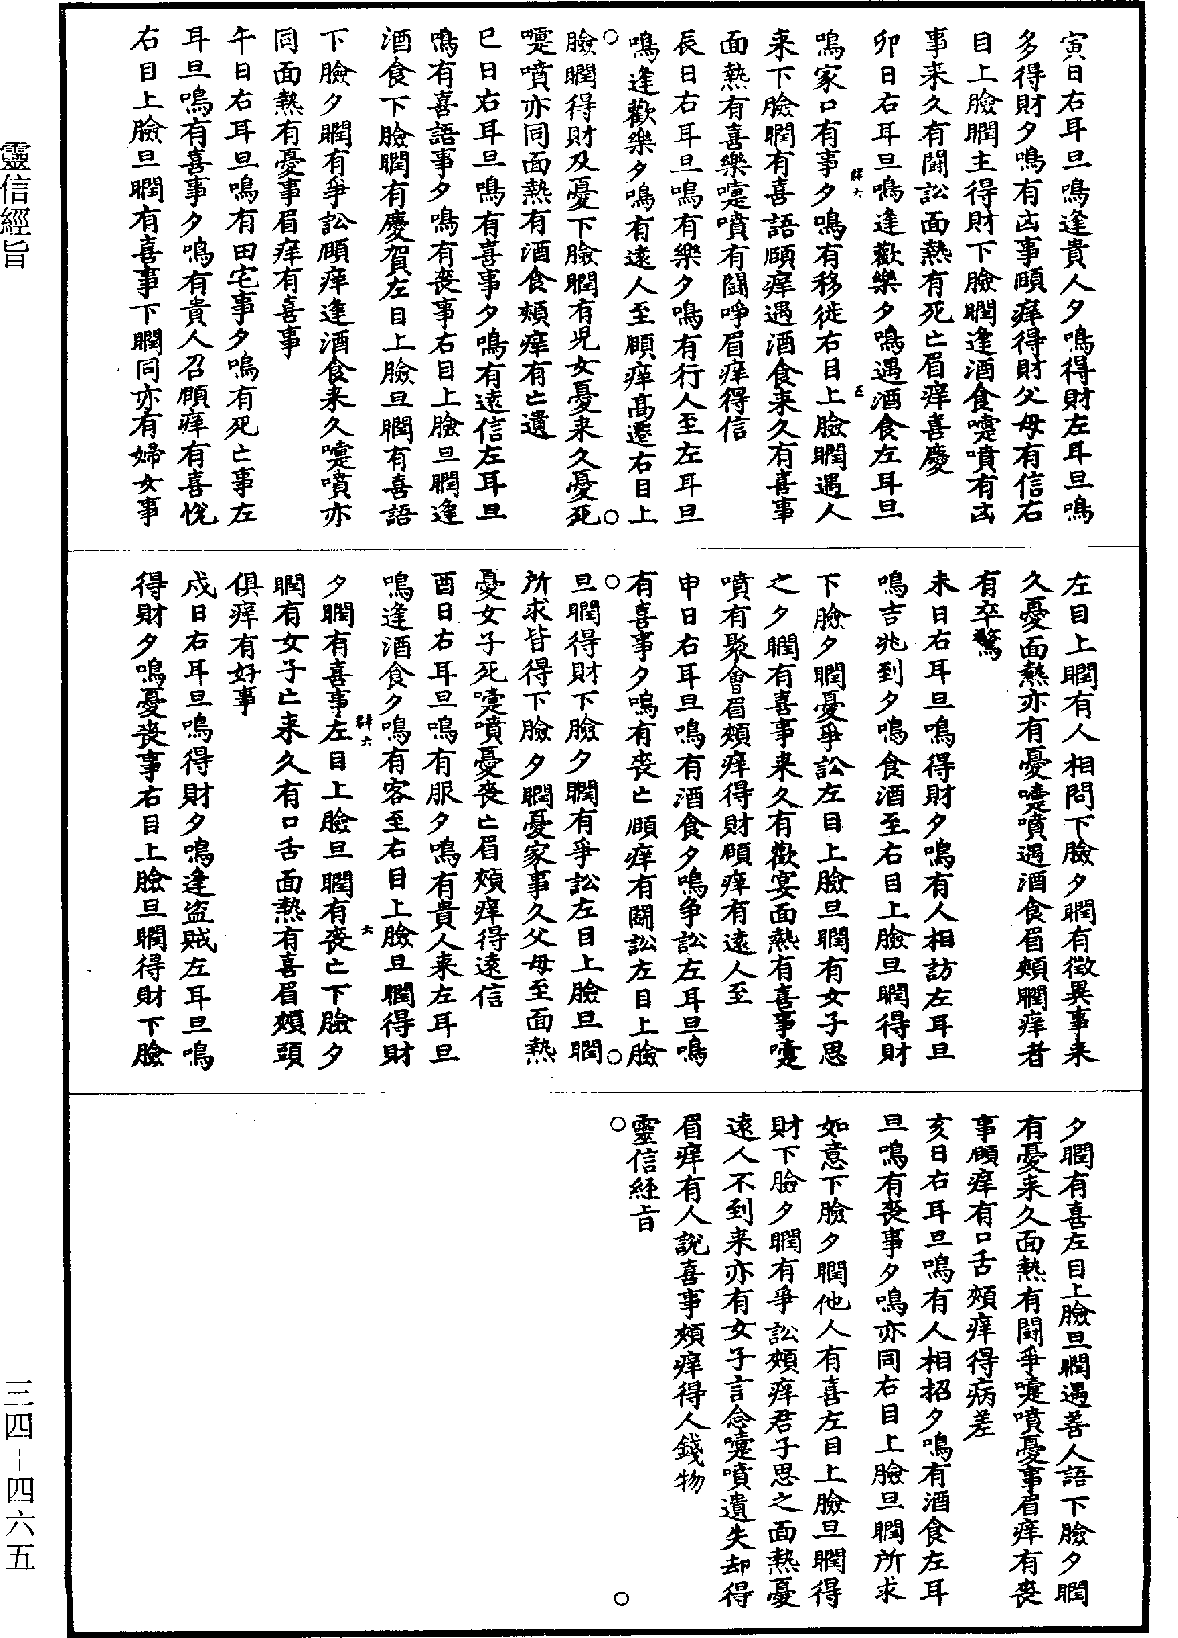 寅日右耳旦鳴逢貴人夕鳴得財左耳旦鳴
多得財夕鳴有凶事頤痒得財父母有信右
目上臉瞤主得財下臉瞤逢酒食嚏噴有凶
事来久有鬪訟面熱有死亡眉痒喜慶
卯日右耳旦鳴逢歡樂夕鳴遇酒食左耳旦
鳴家口有事夕鳴有移徙右目上臉瞤遇人
来下臉瞤有喜語頤痒遇酒食来久有喜事
面熱有喜樂嚏噴有鬪諍眉痒得信
辰日右耳旦鳴有樂夕鳴有行人至左耳旦
鳴逢歡樂夕鳴有遠人至頤痒高遷右目上
臉瞤得財及憂下臉瞤有児女憂来久憂死
嚏噴亦同面熱有酒食頰痒有亡遺
巳日右耳旦鳴有喜事夕鳴有遠信左耳旦
鳴有喜語事夕鳴有喪事右目上臉旦瞤逢
酒食下臉瞤有慶賀左目上臉旦瞤有喜語
下臉夕瞤有爭訟頤痒逢酒食来久嚏噴亦
同面熱有憂事眉痒有喜事
午日右耳旦鳴有田宅事夕鳴有死亡事左
耳旦鳴有喜事夕鳴有貴人召頤痒有喜悅
右目上臉旦瞤有喜事下瞤同亦有婦女事
左目上瞤有人相問下臉夕瞤有徵異事来
久憂面熱亦有憂嚏噴遇酒食眉頰瞤痒者
有卒驚
未日右耳旦鳴得財夕鳴有人相訪左耳旦
鳴吉兆到夕鳴食酒至右目上臉旦瞤得財
下臉夕瞤憂爭訟左目上臉旦瞤有女子思
之夕瞤有喜事来久有歡宴面熱有喜事嚏
噴有聚會眉頰痒得財頤痒有遠人至
申日右耳旦鳴有酒食夕鳴爭訟左耳旦鳴
有喜事夕鳴有喪亡頤痒有鬪訟左目上臉
旦瞤得財下臉夕瞤有爭訟左目上臉旦瞤
所求皆得下臉夕瞤憂家事久父母至面熱
憂女子死嚏噴憂喪亡眉頰痒得遠信
酉日右耳旦鳴有服夕鳴有貴人来左耳旦
鳴逢酒食夕鳴有客至右目上臉旦瞤得財
夕瞤有喜事左目上臉旦瞤有喪亡下臉夕
瞤有女子亡来久有口舌面熱有喜眉頰頭
俱痒有好事
戍日右耳旦鳴得財夕鳴逢盜賊左耳旦鳴
得財夕鳴憂喪事右目上臉旦瞤得財下臉
夕瞤有喜左目上臉旦瞤遇善人語下臉夕瞤
有憂来久面熱有鬪爭嚏噴憂事眉痒有喪
事頤痒有口舌頰痒得病差
亥日右耳旦鳴有人相招夕鳴有酒食左耳
旦鳴有喪事夕鳴亦同右目上臉旦瞤所求
如意下臉夕瞤他人有喜左目上臉旦瞤得
財下臉夕瞤有爭訟頰痒君子思之面熱憂
遠人不到来亦有女子言念嚏噴遺失却得
眉痒有人說喜事頰痒得人錢物
靈信經旨
靈信經旨
三四-四六五